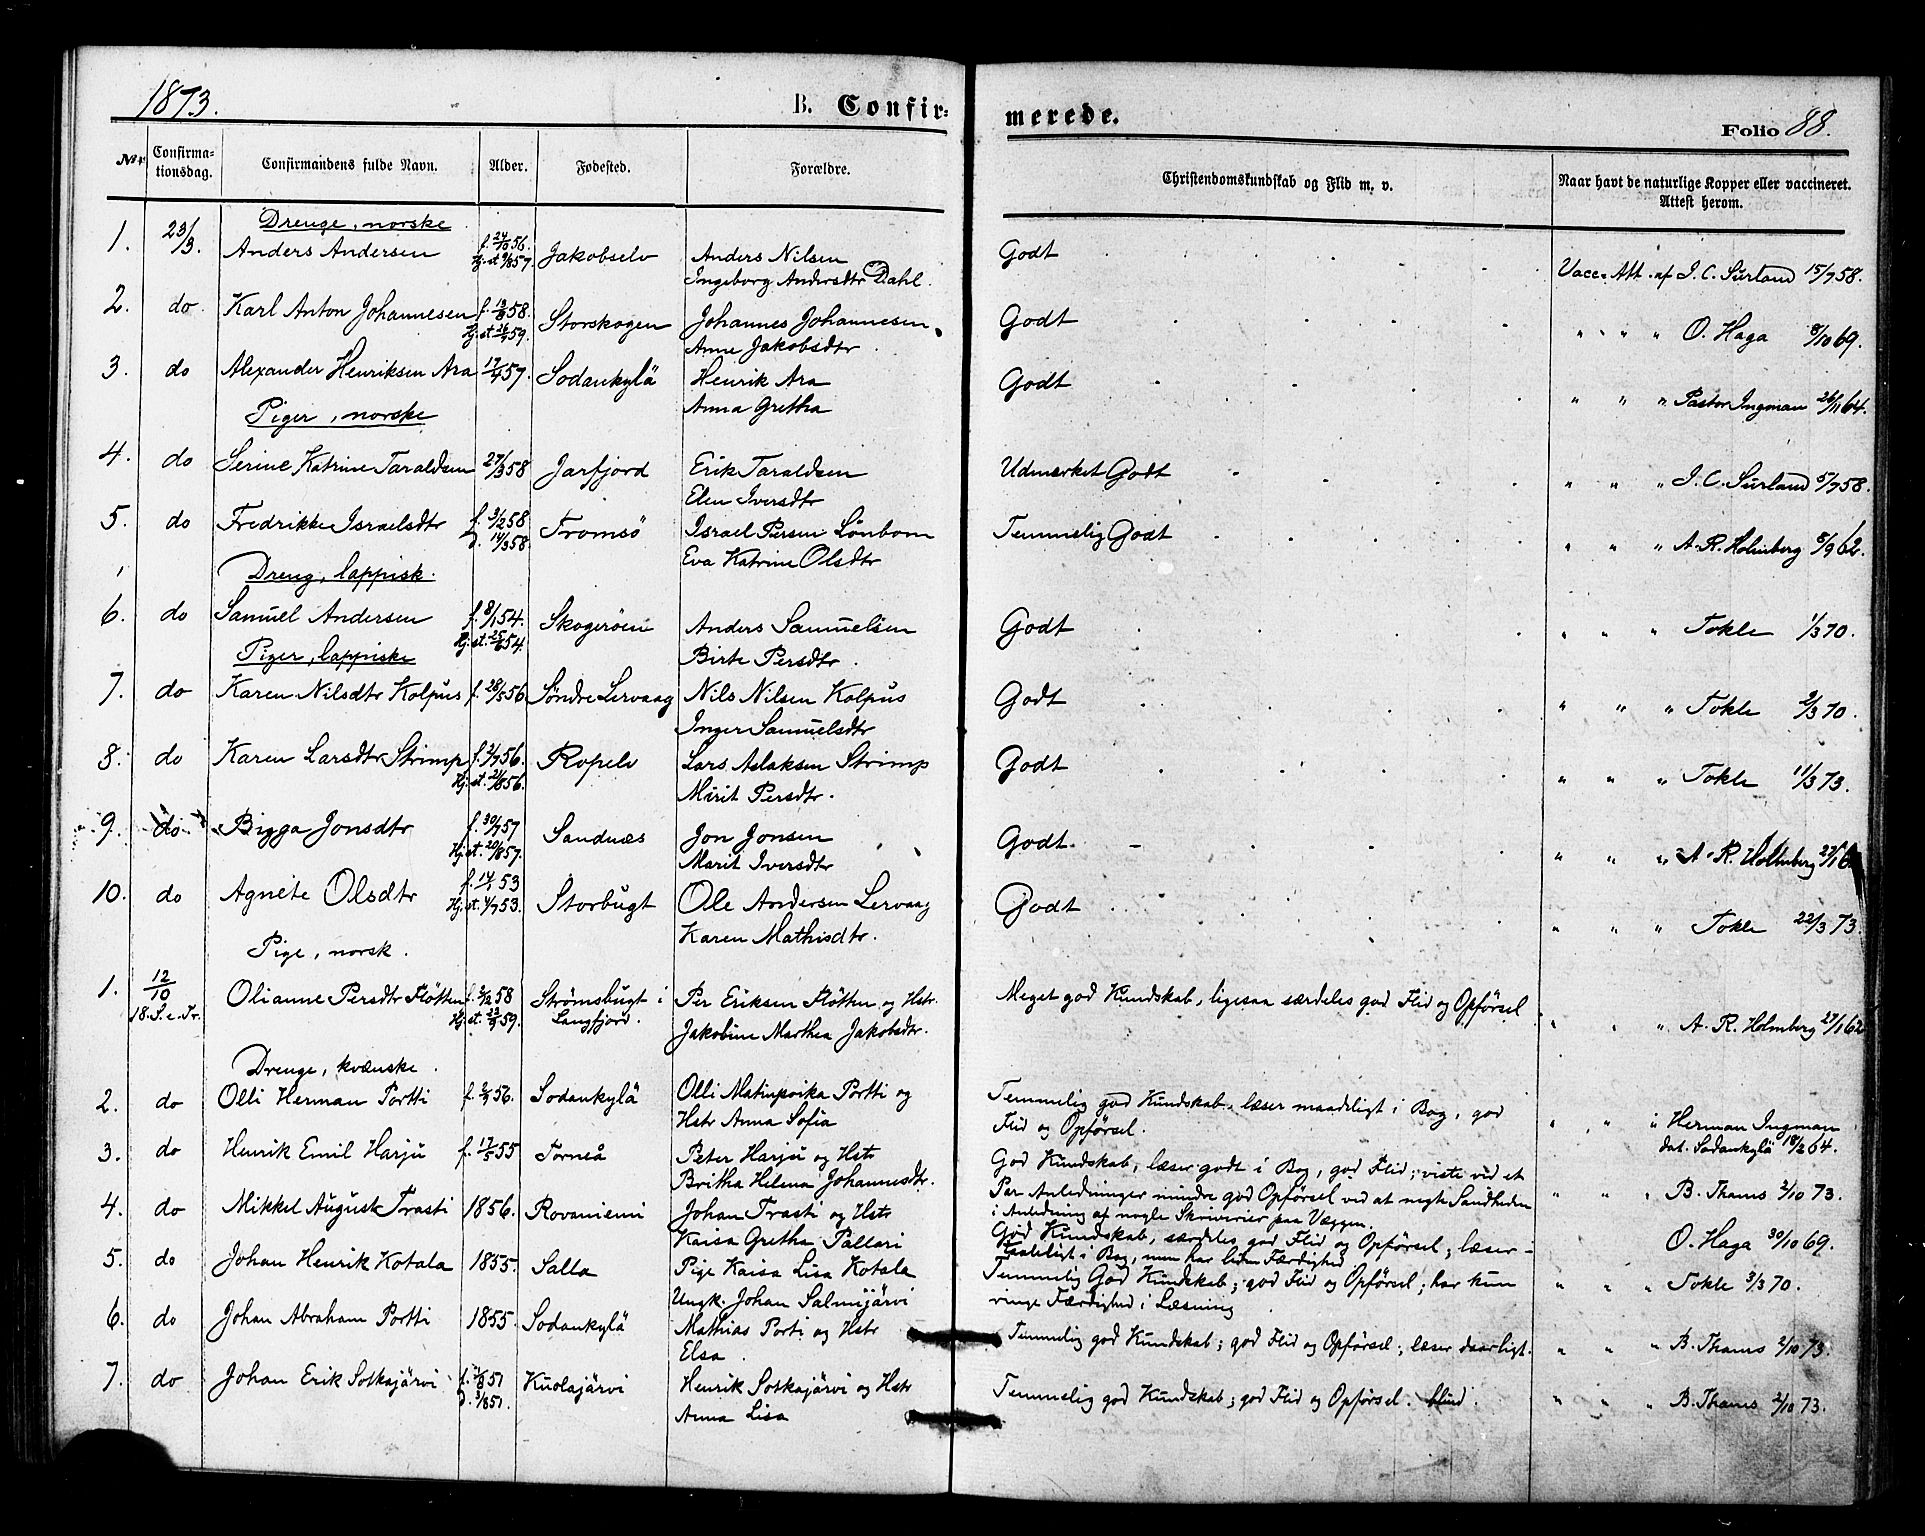 1873.
B. Confirmerede.
Folio 88.
No. Confirmationsdag. Confirmandens fulde Navn. Alder. Fødested. Forældre. Christendomskundskab og Flid m. v. Naar havt de naturlige Kopper eller vaccineret. Attest herom.
Drenge, norske
1. 23/3. Anders Andersen f. 24/10 56. Hj.st. 9/8 57. Jakobselv Anders Nilsen Godt Vacc. Att. af I. C. Sürland 15/7 58.
Ingeborg Andersdtr Dahl.
2. do Karl Anton Johannesen f. 58. Hj.st. 59. Storskogen Johannes Johannesen Godt " " " O. Haga 8/10 69.
Anne Jakobsdtr.
3. do Alexander Henriksen Ara 17/4 57. Sodankylä Henrik Ara Godt " " " Pastor Ingman 26/11 64.
Anna Gretha
Piger, norske
4. do Serine Katrine Taraldsen 27/3 58 Jarfjord Erik Taraldsen Udmærket Godt " " " I. C. Sürland 5/7 58.
Elen Iversdtr
5. do Fredrikke Israelsdtr f. 3/2 58 d. 14/3 58. Tromsö Israel Persen Lönbom Temmelig Godt " " " A. R. Holmberg 5/9 62.
Eva Katrine Olsdtr
Dreng, lappisk.
6. do Samuel Andersen f. 8/1 54. Hj.st. 54. Skogeröen Anders Samuelsen Godt " " " Tokle 1/3 70.
Birte Persdtr.
Piger, lappiske
7. do Karen Nilsdtr Kolpus f. 28/5 56 Søndre Lervaag Nils Nilsen Kolpus Godt " " " Tokle 2/3 70.
Inger Samuelsdtr
8. do Karen Larsdtr Strimp f. 2/7 56. Hj.st. 24/8 56. Ropelv Lars Aslaksen Strimp Godt " " " Tokle 11/3 73.
Marit Persdtr.
9. do Bigga Jonsdtr f. 30/7 57 Hj.st. 20/8 57. Sandnæs Jon Jonsen Godt. " " " A. R. Holmberg
Marit Iversdtr
10. do Agnete Olsdtr f. 53 Hj.st. 4/7 53. Storbugt Ole Andersen Lervaag Godt " " " Tokle 22/3 73.
Karen Mathisdtr.
Pige, norsk.
1. 12/10 18. S. e. Tr. Olianne Persdtr Flötten f. 2/12 58 Hj.st. 59. Strömsbugt i Langfjord. Per Eriksen Flötten og Hstr. Meget god Kundskab, ligesaa særdeles god Flid og Opførsel " " A. R. Holmberg 27/1 62
Jakobine Marthea Jakobsdtr.
Drenge, kvænske.
2. do Olli Herman Portti f. 2/4 56. Sodankylä Olli Matinpoika Portti og Temmelig god Kundskab, læser maadeligt i Bog, god " " " Herman Ingman
Hstr Anna Sofia Flid og Opførsel. dat. Sodankylä 18/2 64.
3. do Henrik Emil Harju f. 17/5 55 Torneå Peter Harju og Hstr God Kundskab, læser godt i Bog, god Flid; viste ved et
Britha Helena Johannesdtr. Par Anledninger mindre god Opførsel ved at negte Sandheden " " " B. Thams 2/10 73.
i Anledning af nogle Skriverier paa Væggen.
4. do Mikkel August Trasti 1856. Rovaniemi Johan Trasti og Hstr God Kundskab, særdeles god Flid og Opførsel; læser O. Haga 30/10 69.
Kaisa Gretha Pallari taaleligt i Bog, men har liden Færdighed
5. do Johan Henrik Kotala 1855. Salla Pige Kaisa Lisa Kotala Temmelig God Kundskab; god Flid og Opførsel; har kun " " " Tokle 3/3 70.
Ungk. Johan Salmijärvi ringe Færdighed i Læsning
6. do Johan Abraham Portti 1855. Sodankylä Mathias Porti og Hstr Temmelig god Kundskab; god Flid og Opførsel; læser daarligt. " " " B. Thams 2/10 73.
Elsa.
7. do Johan Erik Sotkajärvi f. 51 d. 3/8 51. Kuolajärvi Henrik Sotkajärvi og Hstr Temmelig god Kundskab; god Flid og Opførsel. blind. " " " B. Thams 2/10 73.
Anna Lisa